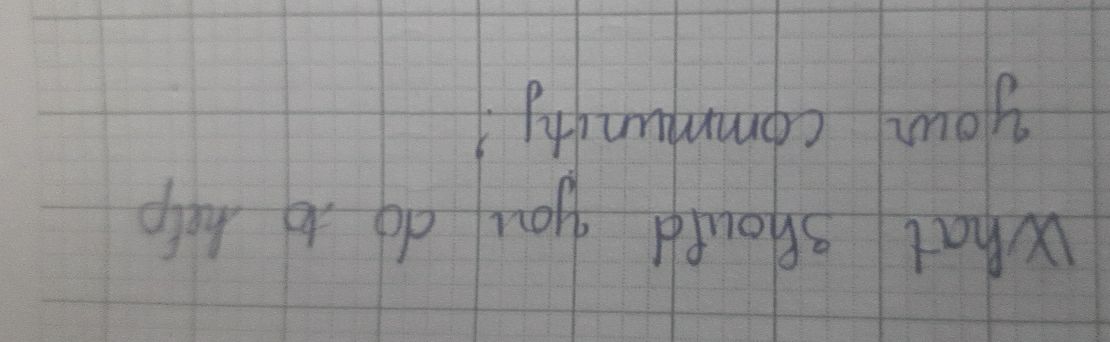 What should you do to help
your community?